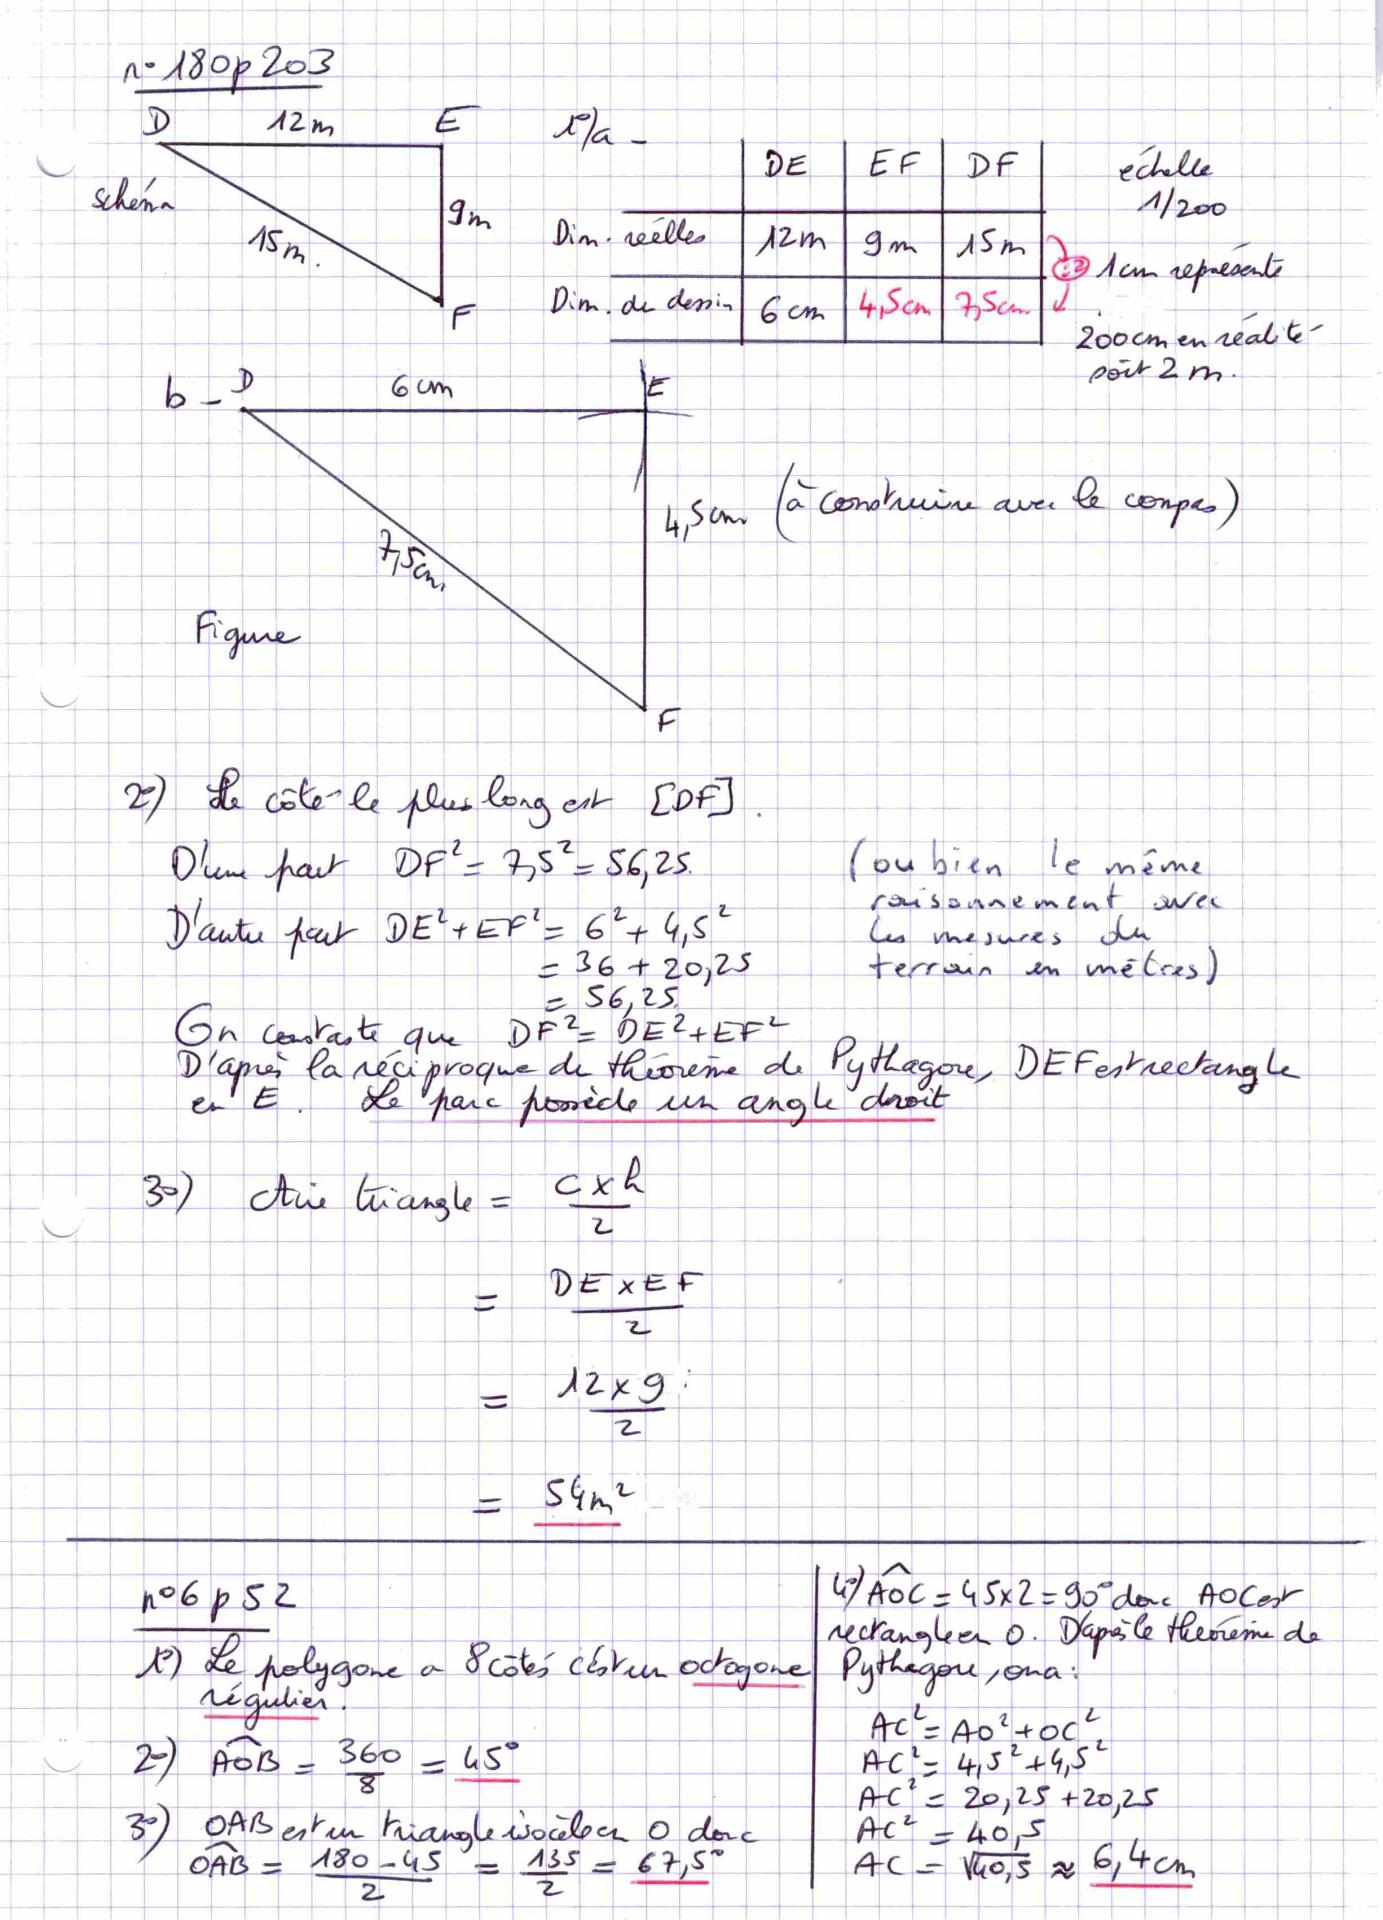 n° 180p203
D 12m E
schéma
15m.
9m
F
1°/a -
DE EF DF
Dim. réelles 12m 9m 15m
Dim. du dessin 6cm 4,5cm 7,5cm
:2
échelle
1/200
1cm représente
200cm en réalité
soit 2m.
b - D 6cm E
4,5cm (à construire avec le compas)
7,5cm
Figure
F
2°) Le côté le plus long est [DF].
D'une part DF² = 7,5² = 56,25.
D'autre part DE²+EF² = 6² + 4,5²
= 36 + 20,25
= 56,25.
(ou bien le même
raisonnement avec
les mesures du
terrain en mètres)
On constate que DF² = DE²+EF²
D'après la réciproque du théorème de Pythagore, DEF est rectangle
en E. Le parc possède un angle droit
3°) Aire triangle = c x h / 2
= DE x EF / 2
= 12 x 9 / 2
= 54m²
n°6 p 52
1°) Le polygone a 8 côtés c'est un octogone
régulier.
2°) AOB = 360/8 = 45°
3°) OAB est un triangle isocèle en O donc
OAB = 180-45 / 2 = 135/2 = 67,5°
4°) AOC = 45x2 = 90° donc AOC est
rectangle en O. D'après le théorème de
Pythagore, on a :
AC² = AO² + OC²
AC² = 4,5² + 4,5²
AC² = 20,25 + 20,25
AC² = 40,5
AC = √40,5 ≈ 6,4cm